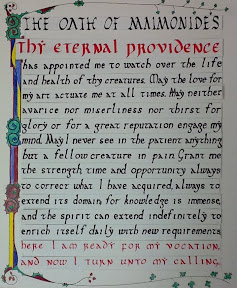 THE OATH OF MAIMONIDES
Thy eternal providence
has appointed me to watch over the life
and health of thy creatures. May the love for
my art actuate me at all times. May neither
avarice nor miserliness nor thirst for
glory or for a great reputation engage my
mind. May I never see in the patient anything
but a fellow creature in pain. Grant me
the strength time and opportunity always
to correct what I have acquired, always to
extend its domain for knowledge is immense,
and the spirit can extend indefinitely to
enrich itself daily with new requirements.
here I am ready for my vocation,
and now I turn unto my calling.